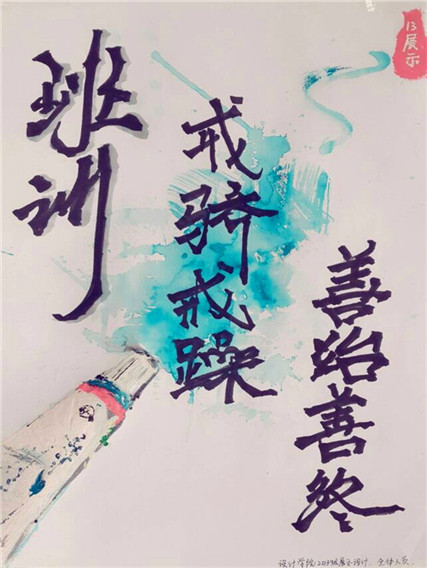 班训
戒骄戒躁
善始善终
13展示
设计学院2013级展示设计 全体人员